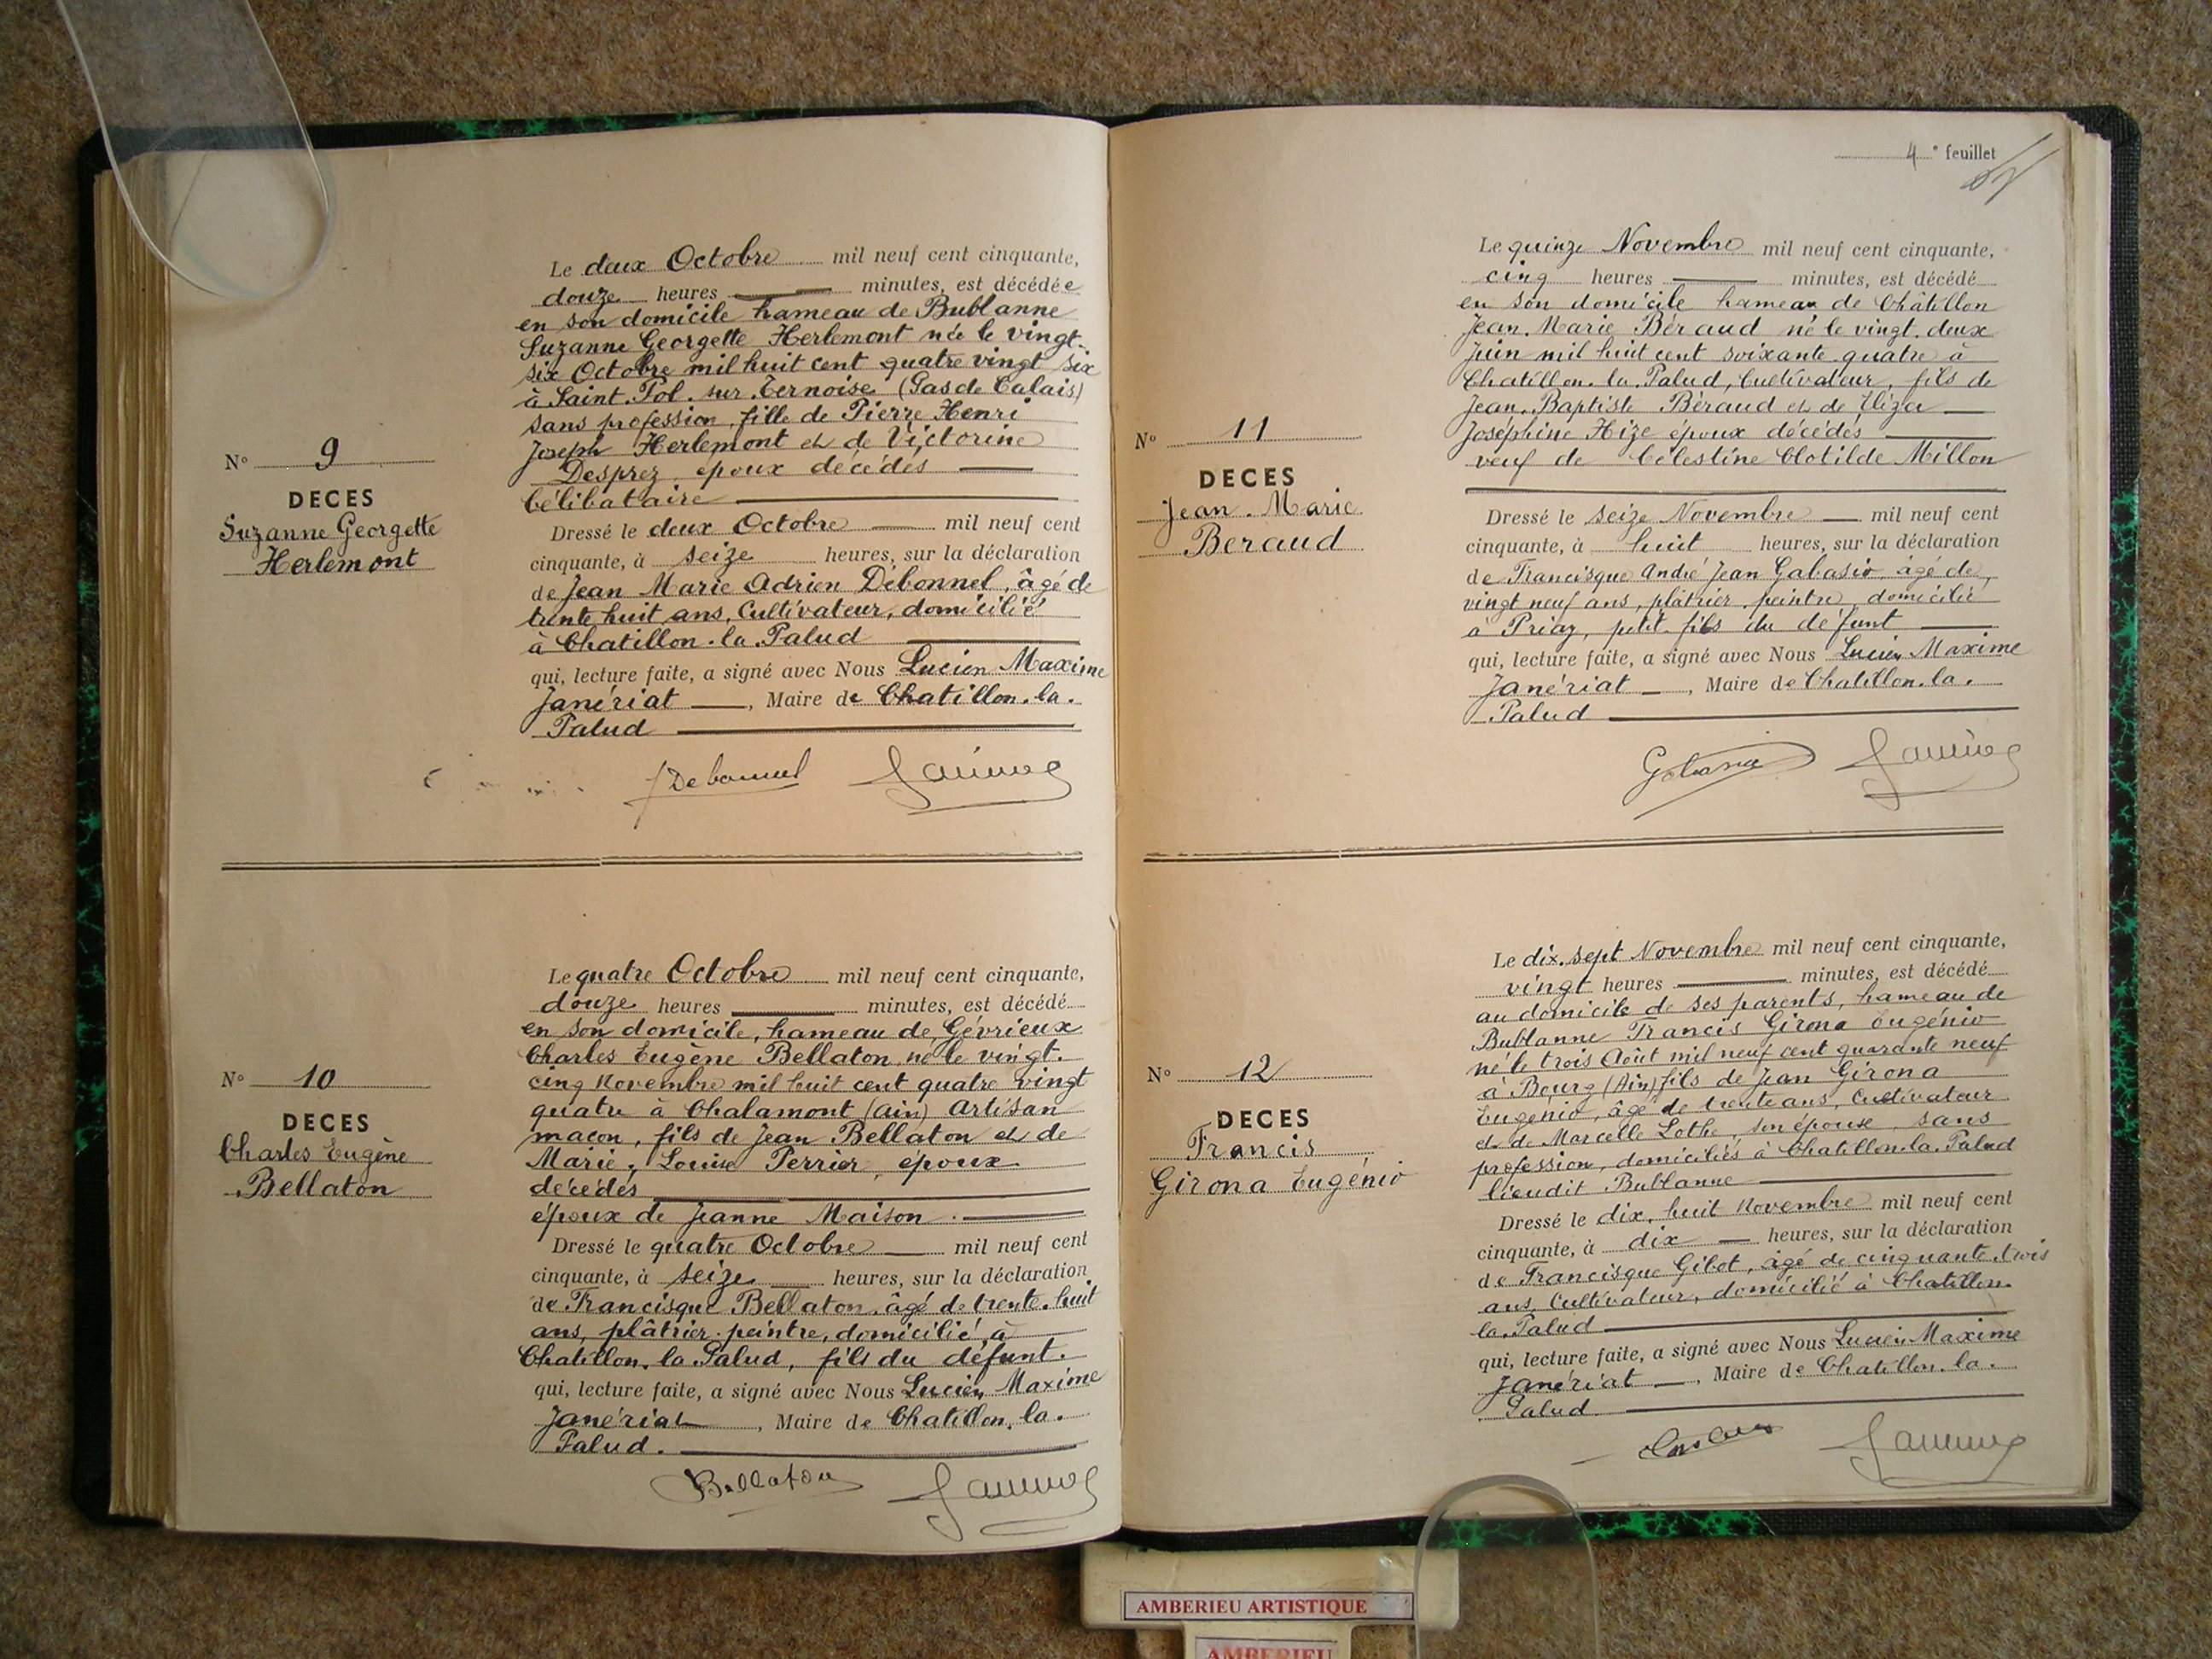 N° 9
DECES
Suzanne Georgette
Herlemont
Le deux Octobre mil neuf cent cinquante,
douze heures minutes, est décédée
en son domicile hameau de Bublanne
Suzanne Georgette Herlemont née le vingt.
six Octobre mil huit cent quatre vingt six
à Saint. Pol. sur. Ternoise (Pas de Calais)
sans profession, fille de Pierre Henri
Joseph Herlemont et de Victorine
Desprez, époux décédés
Célibataire
Dressé le deux Octobre mil neuf cent
cinquante, à seize heures, sur la déclaration
de Jean Marie Adrien Débonnel, âgé de
trente huit ans, Cultivateur, domicilié
à Chatillon. la. Palud
qui, lecture faite, a signé avec Nous Lucien Maxime
Janériat, Maire de Chatillon. la.
Palud
Debonnel
N° 10
DECES
Charles Eugène
Bellaton
Le quatre Octobre mil neuf cent cinquante,
douze heures minutes, est décédé
en son domicile, hameau de Gévrieux
Charles Eugène Bellaton né le vingt.
cinq Novembre mil huit cent quatre vingt
quatre à Chalamont (Ain) Artisan
maçon, fils de Jean Bellaton et de
Marie. Louise Perrier, époux
décédés
époux de Jeanne Maison.
Dressé le quatre Octobre mil neuf cent
cinquante, à seize heures, sur la déclaration
de Francisque Bellaton, âgé de trente. huit
ans, plâtrier. peintre, domicilié à
Chatillon. la Palud, fils du défunt.
qui, lecture faite, a signé avec Nous Lucien Maxime
Janériat, Maire de Chatillon. la.
Palud.
Bellaton
4e feuillet
N° 11
DECES
Jean. Marie
Beraud
Le quinze Novembre mil neuf cent cinquante,
cinq heures minutes, est décédé
en son domicile hameau de Châtillon
Jean. Marie Béraud né le vingt. deux
Juin mil huit cent soixante quatre à
Chatillon. la. Palud, Cultivateur, fils de
Jean. Baptiste Béraud et de Eliza
Joséphine Hize époux décédés
veuf de Célestine Clotilde Millon
Dressé le seize Novembre mil neuf cent
cinquante, à huit heures, sur la déclaration
de Francisque André Jean Gabasio, âgé de
vingt neuf ans, plâtrier. peintre, domicilié
à Priay, petit. fils du défunt
qui, lecture faite, a signé avec Nous Lucien Maxime
Janériat, Maire de Chatillon. la.
Palud
N° 12
DECES
Francis
Girona Eugénio
Le dix. sept Novembre mil neuf cent cinquante,
vingt heures minutes, est décédé
au domicile de ses parents, hameau de
Bublanne Francis Girona Eugénio
né le trois Août mil neuf cent quarante neuf
à Bourg (Ain) fils de Jean Girona
Eugenio, âgé de trente ans, Cultivateur
et de Marcelle Lothe, son épouse, sans
profession, domiciliés à Chatillon. la. Palud
lieudit Bublanne
Dressé le dix. huit Novembre mil neuf cent
cinquante, à dix heures, sur la déclaration
de Francisque Gibot, âgé de cinquante. trois
ans, Cultivateur, domicilié à Chatillon.
la. Palud
qui, lecture faite, a signé avec Nous Lucien Maxime
Janériat, Maire de Chatillon. la.
Palud
AMBERIEU ARTISTIQUE
AMBERIEU